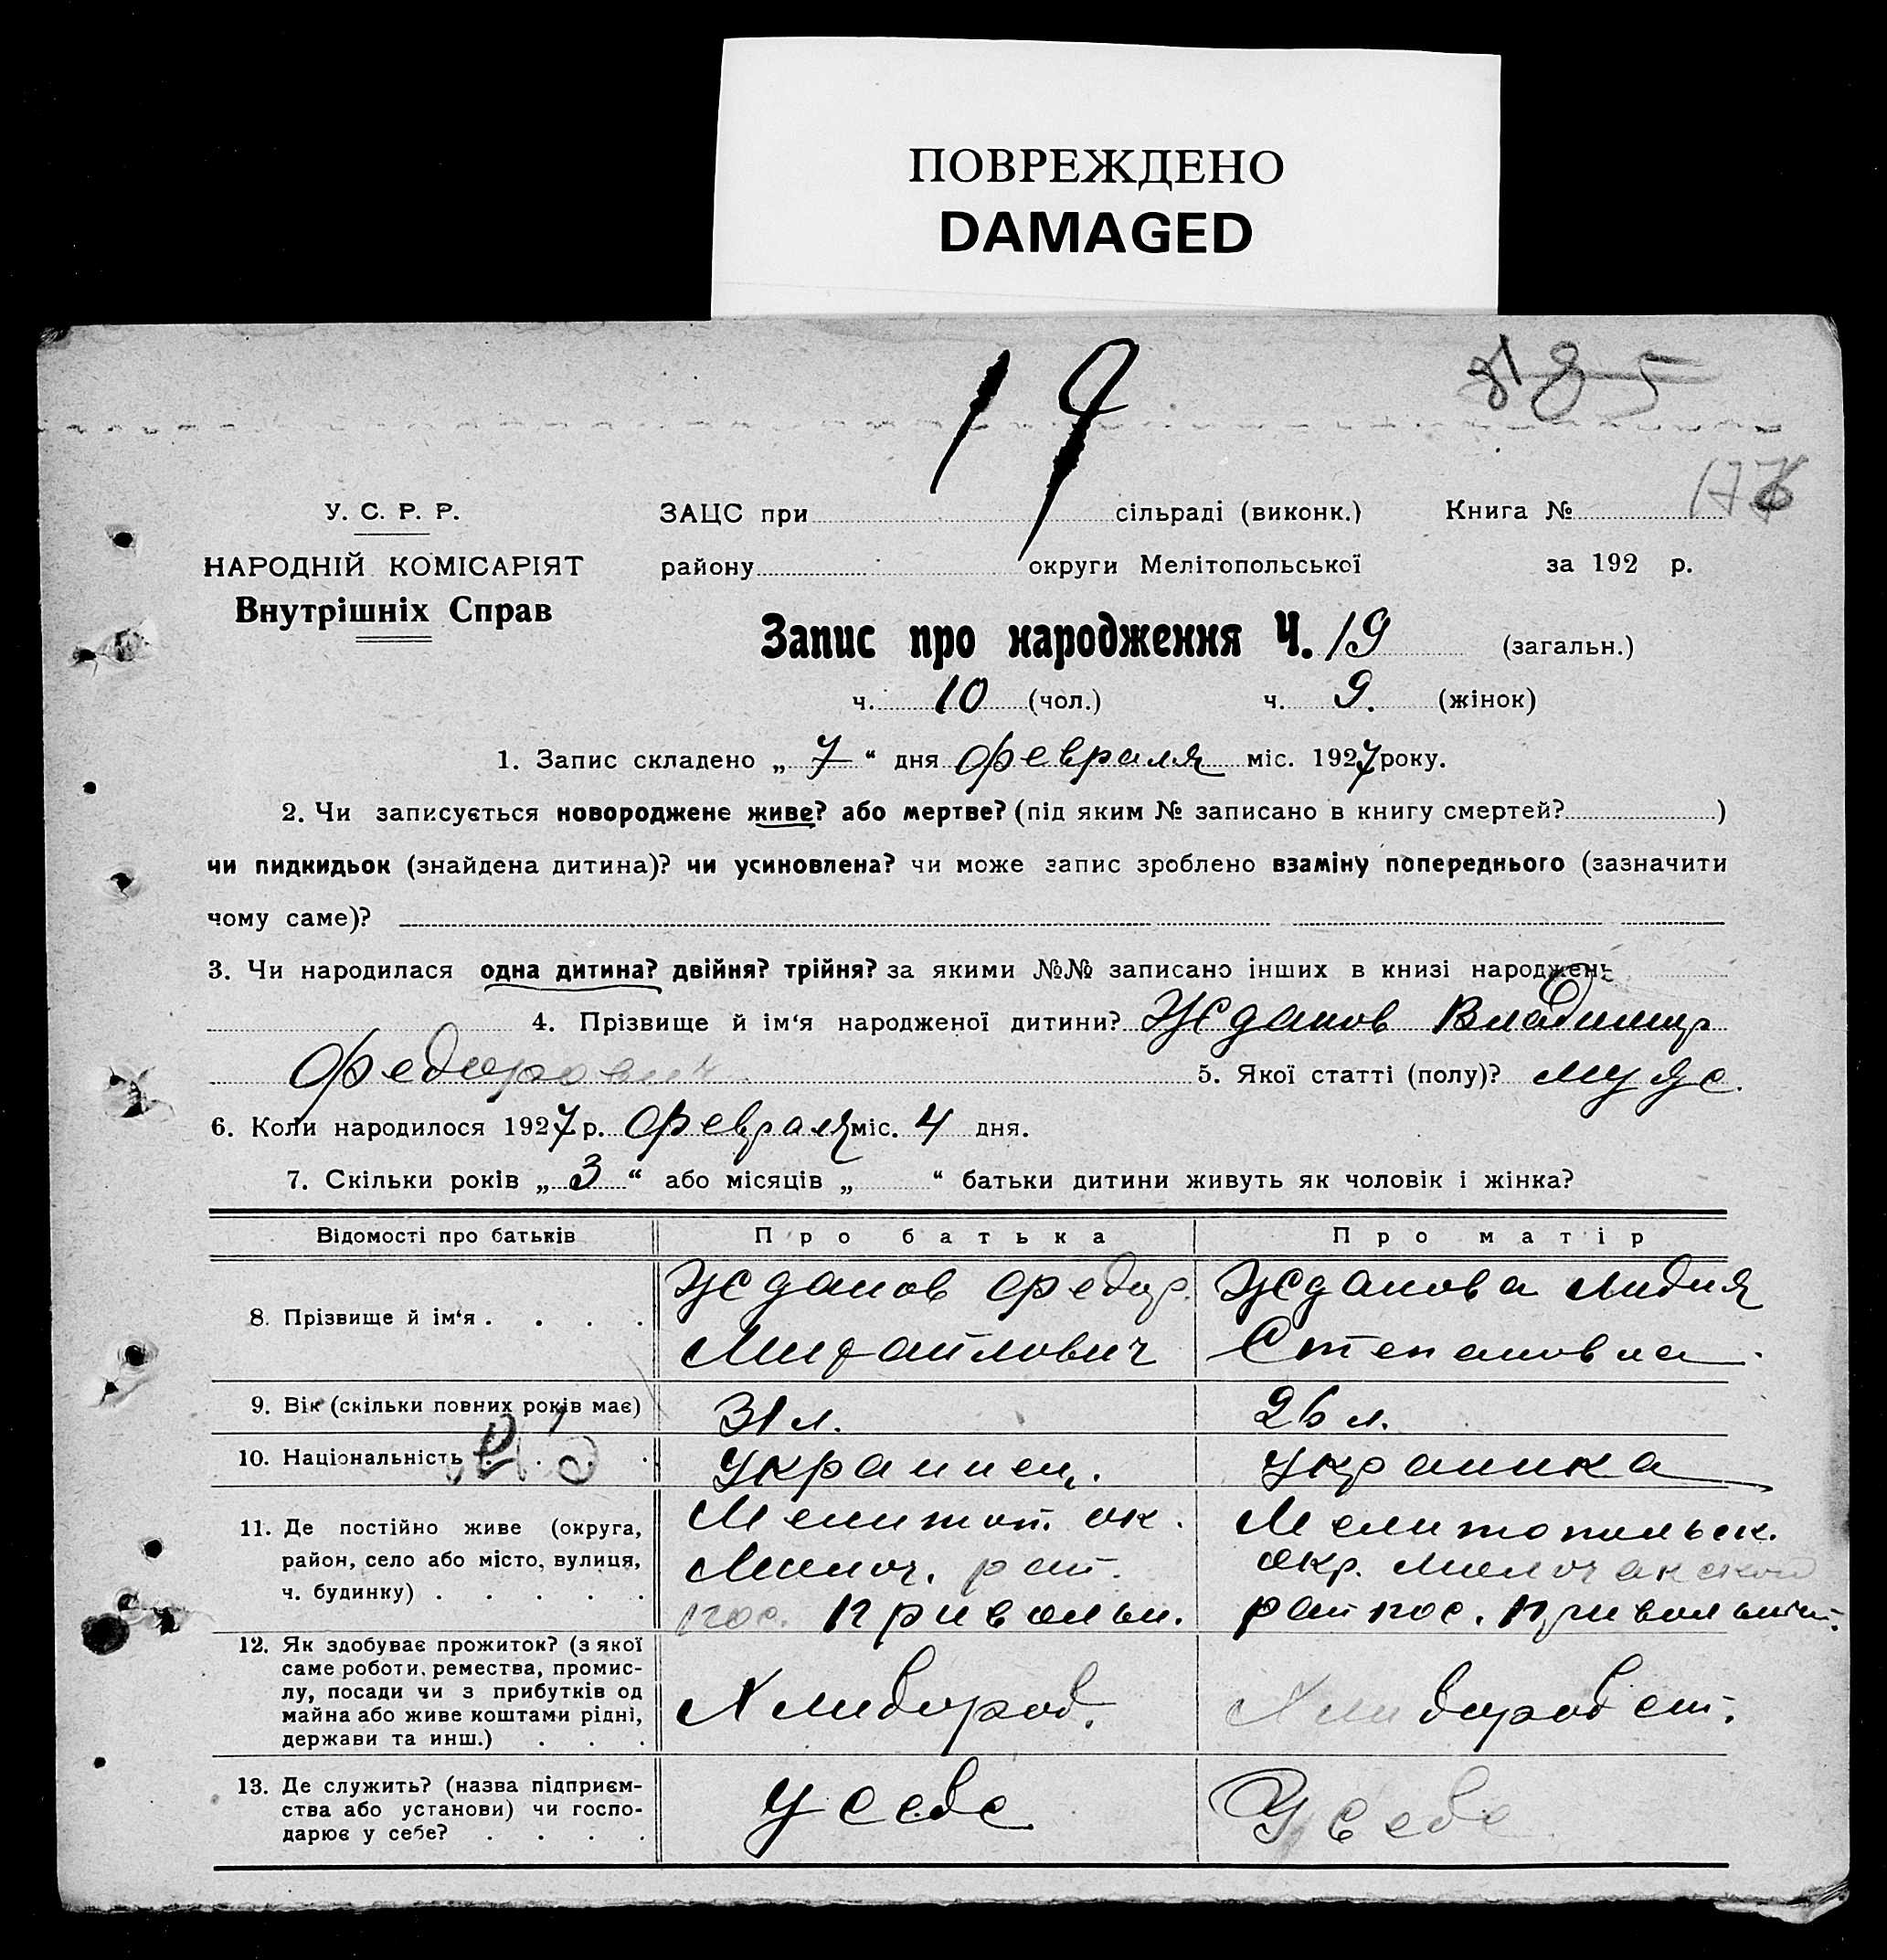 ПОВРЕЖДЕНО
DAMAGED
19
885
У. С. Р. Р.
НАРОДНІЙ КОМІСАРІЯТ
Внутрішніх Справ
ЗАЦС при сільраді (виконк.) Книга №
району округи Мелітопольської за 192 р.
Запис про народження Ч. 19 (загальн.)
ч. 10 (чол.) ч. 9. (жінок)
1. Запис складено „ 7 “ дня февраля міс. 1927 року.
2. Чи записується новороджене живе? або мертве? (під яким № записано в книгу смертей? )
чи пидкидьок (знайдена дитина)? чи усиновлена? чи може запис зроблено взаміну попереднього (зазначити
чому саме)?
3. Чи народилася одна дитина? двійня? трійня? за якими №№ записано інших в книзі народжень
4. Прізвище й ім‘я народженої дитини? Жданов Владимир
Федорович 5. Якої статті (полу)? мужс.
6. Коли народилося 1927 р. февраля міс. 4 дня.
7. Скільки років „ 3 “ або місяців „ “ батьки дитини живуть як чоловік і жінка?
Відомості про батьків Про батька Про матір
8. Прізвище й ім‘я . . . .
Жданов Федор.
Михайлович
Жданова Лидия
Степановна
9. Вік (скільки повних років має) 31 л. 26 л.
10. Національність . . . украинец. украинка
11. Де постійно живе (округа,
район, село або місто, вулиця,
ч. будинку) . . . . .
Мелитоп. ок.
Молоч. рай.
пос. Привольн.
Мелитопольск.
окр. Молочанской
рай пос. Привольный.
12. Як здобуває прожиток? (з якої
саме роботи, ремества, промис-
лу, посади чи з прибутків од
майна або живе коштами рідні,
держави та инш.) . . .
Хлибороб.
Хлибороб ст.
13. Де служить? (назва підприєм-
ства або установи) чи госпо-
дарює у себе? . . . .
У себе
У себе